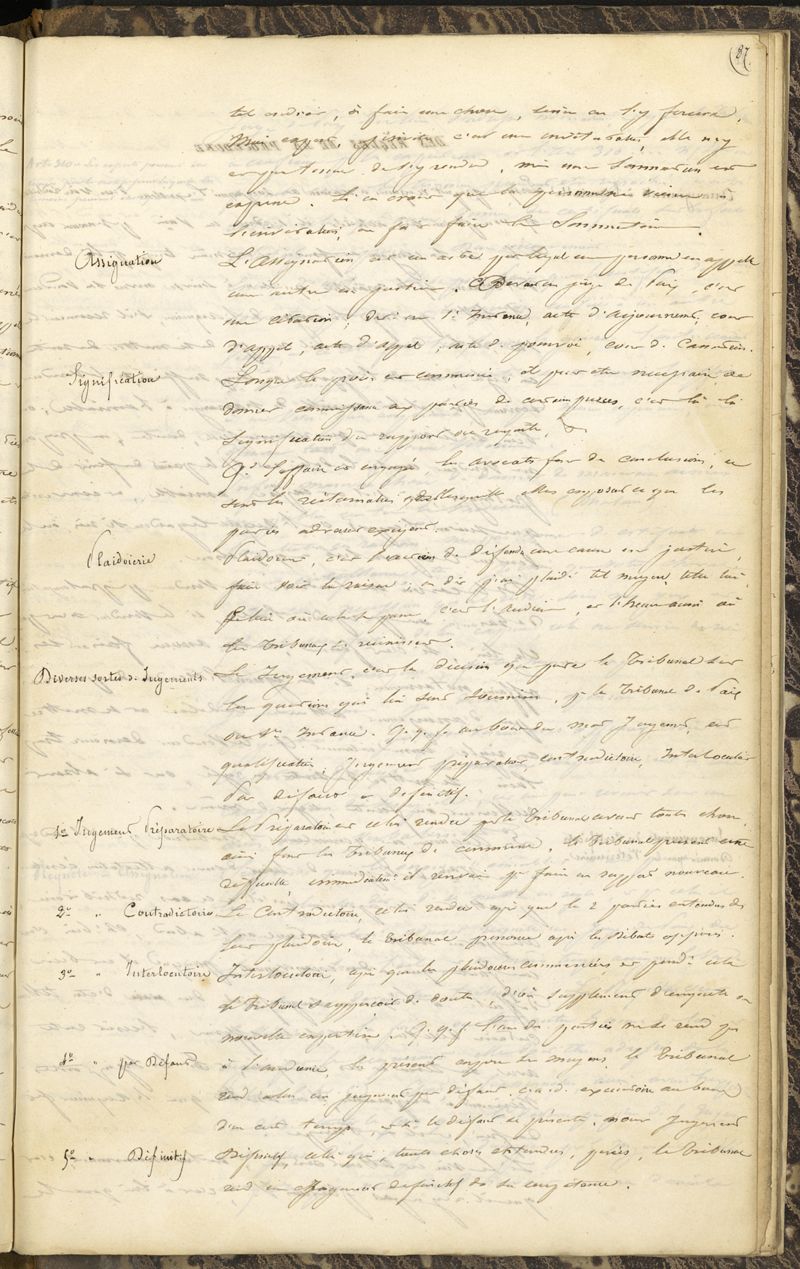 87
tel endroit, à faire une chose, sinon on l'y forcera.
c'est une invitation, elle n'y
de s'y rendre, mais une Sommation est
expresse. Si on croit que la personne
l'invitation, on fait faire la Sommation.
Assignation
L'Assignation est un acte par lequel une personne en appelle
une autre en justice. Devant un juge de Paix, c'est
une citation; devant la 1re Instance, acte d'ajournement, cour
d'appel, acte d'appel; acte de pourvoi, cour de Cassation.
Signification
Lorsque le procès est commencé, il peut être nécessaire de
donner connaissance aux parties de certaines pièces, c'est là la
Signification d'un rapport ou requête.
Qd l'affaire est engagée les avocats font des conclusions, ce
sont les réclamations dans lesquelles elles exposent ce que les
parties adverses exigent.
Plaidoierie
Plaidoierie, c'est l'action de défendre une cause en justice,
faire voir la raison; on dit j'ai plaidé tel moyen, telle loi.
Le lieu où cela se passe, c'est l'Audience, et l'heure aussi où
les Tribunaux se réunissent.
Diverses sortes de Jugements
Le Jugement, c'est la décision que porte le Tribunal sur
les questions qui lui sont soumises, par le Tribunal de Paix
ou 1re Instance. Il y a au bout du mot Jugement, une
qualification; Jugement préparatoire, contradictoire, Interlocutoire
Par défaut et définitif.
1er Jugement Préparatoire
Le Préparatoire est celui rendu par le Tribunal avant toute chose,
ainsi font les Tribunaux de commerce. Le Tribunal une
difficulté, immédiatement il renvoie pour faire un rapport nouveau.
2e " Contradictoire
Le Contradictoire, celui rendu après que les 2 parties entendues de
leur plaidoirie, le Tribunal prononce après les débats opposés.
3e " Interlocutoire
Interlocutoire, après que les plaidoieries commencées et pendt cela
le Tribunal s'apperçoit de doute, d'où supplément d'enquête ou
nouvelle expertise. Il y a l'une des parties ne se rend pas
4e " par Défaut
à l'audience, les présents exposent les moyens, le Tribunal
rend alors un jugement par défaut, c.a.d. exécutoire au bout
d'un certn temps, et si le défaut se présente, nouv. Jugement
5e " Définitif
Définitif, celui qui, toutes choses entendues, pesées, le Tribunal
rend un Jugement définitif de sa compétence.